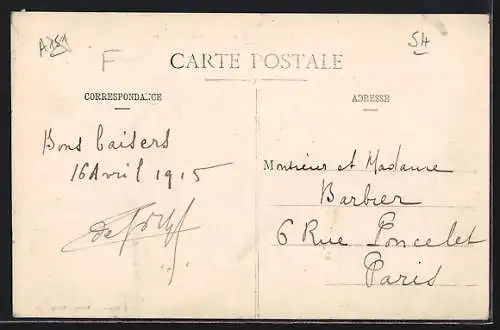 A751
F
54
CARTE POSTALE
CORRESPONDANCE
ADRESSE
Bons baisers
16 Avril 1915
Monsieur et Madame
Barbier
6 Rue Poncelet
Paris